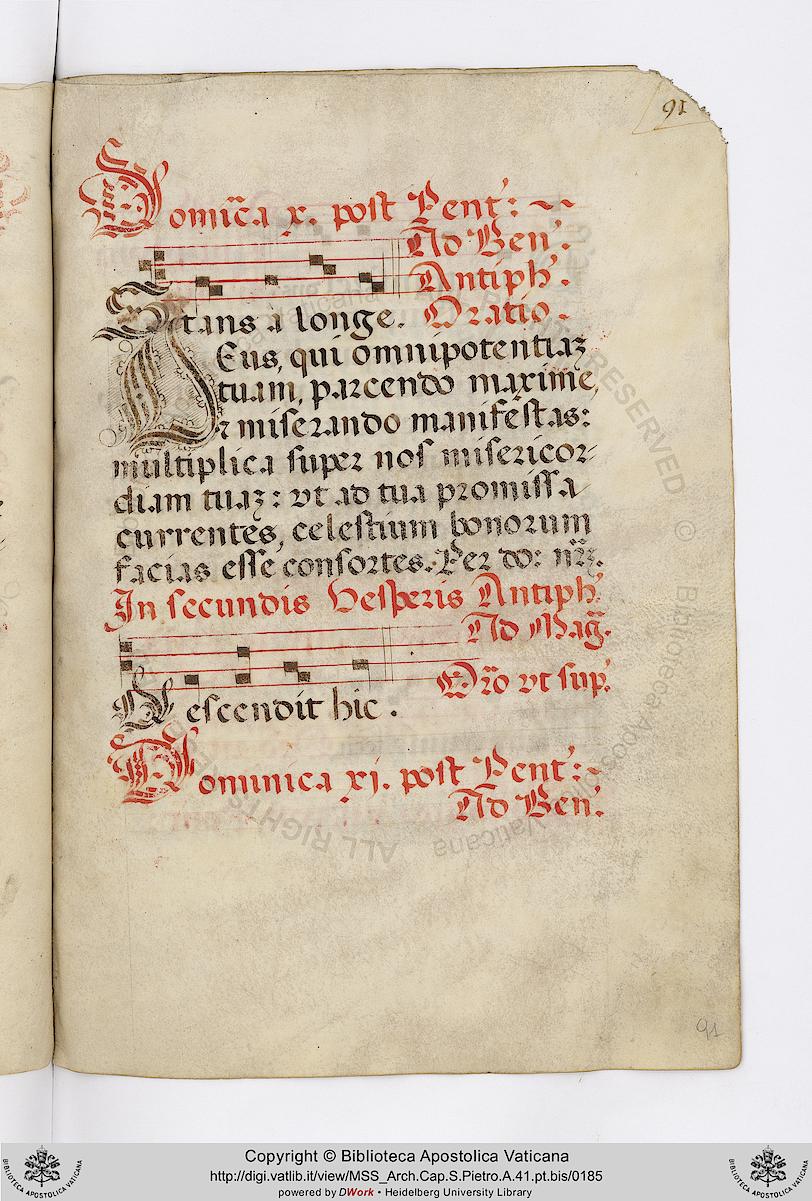 91
Domīca x. post Pent:
Ad Ben.
Antiph.
Stans à longe. Oratio.
DEus, qui omnipotentiaʒ
tuam, parcendo maxime,
& miserando manifestas:
multiplica super nos misericor-
diam tuaʒ: vt ad tua promissa
currentes, celestium bonorum
facias esse consortes. Per do: nr̄ʒ.
In secundis Vesperis Antiph.
Ad Mag̃.
Descendit hic. Or̄o vt sup.
Dominica xj. post Pent:
Ad Ben.
91
ALL RIGHTS RESERVED © Biblioteca Apostolica Vaticana
Copyright © Biblioteca Apostolica Vaticana
http://digi.vatlib.it/view/MSS_Arch.Cap.S.Pietro.A.41.pt.bis/0185
powered by DWork • Heidelberg University Library
BIBLIOTECA APOSTOLICA VATICANA
BIBLIOTECA APOSTOLICA VATICANA